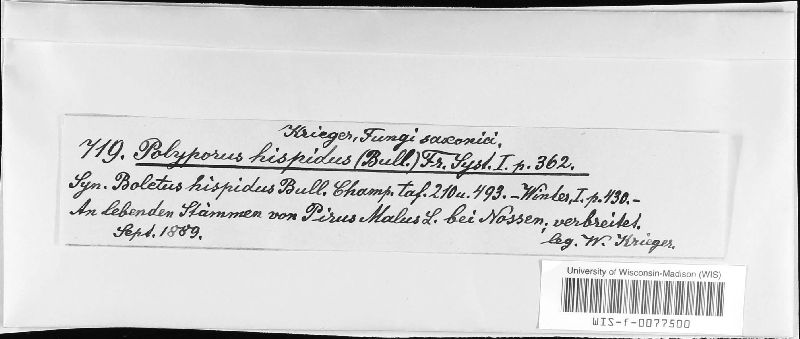 Krieger, Fungi saxonici.
719. Polyporus hispidus (Bull.) Fr. Syst. I. p. 362.
Syn. Boletus hispidus Bull. Champ. taf. 210 u. 493. – Winter, I. p. 430. –
An lebenden Stämmen von Pirus Malus L. bei Nossen, verbreitet.
Sept. 1889.
leg. W. Krieger.
University of Wisconsin-Madison (WIS)
WIS-f-0077500